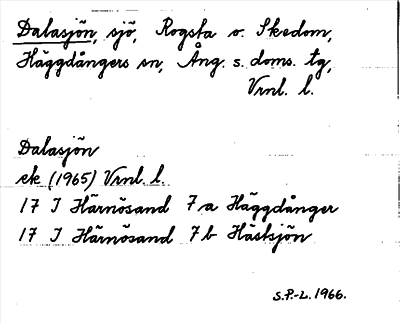 Dalasjön, sjö, Rogsta o. Skedom,
Häggdångers sn, Ång. s. doms. tg,
Vrnl. l.
Dalasjön
ek (1965) Vrnl. l.
17 I Härnösand 7 a Häggdånger
17 I Härnösand 7 b Hästsjön
S.P.-L. 1966.